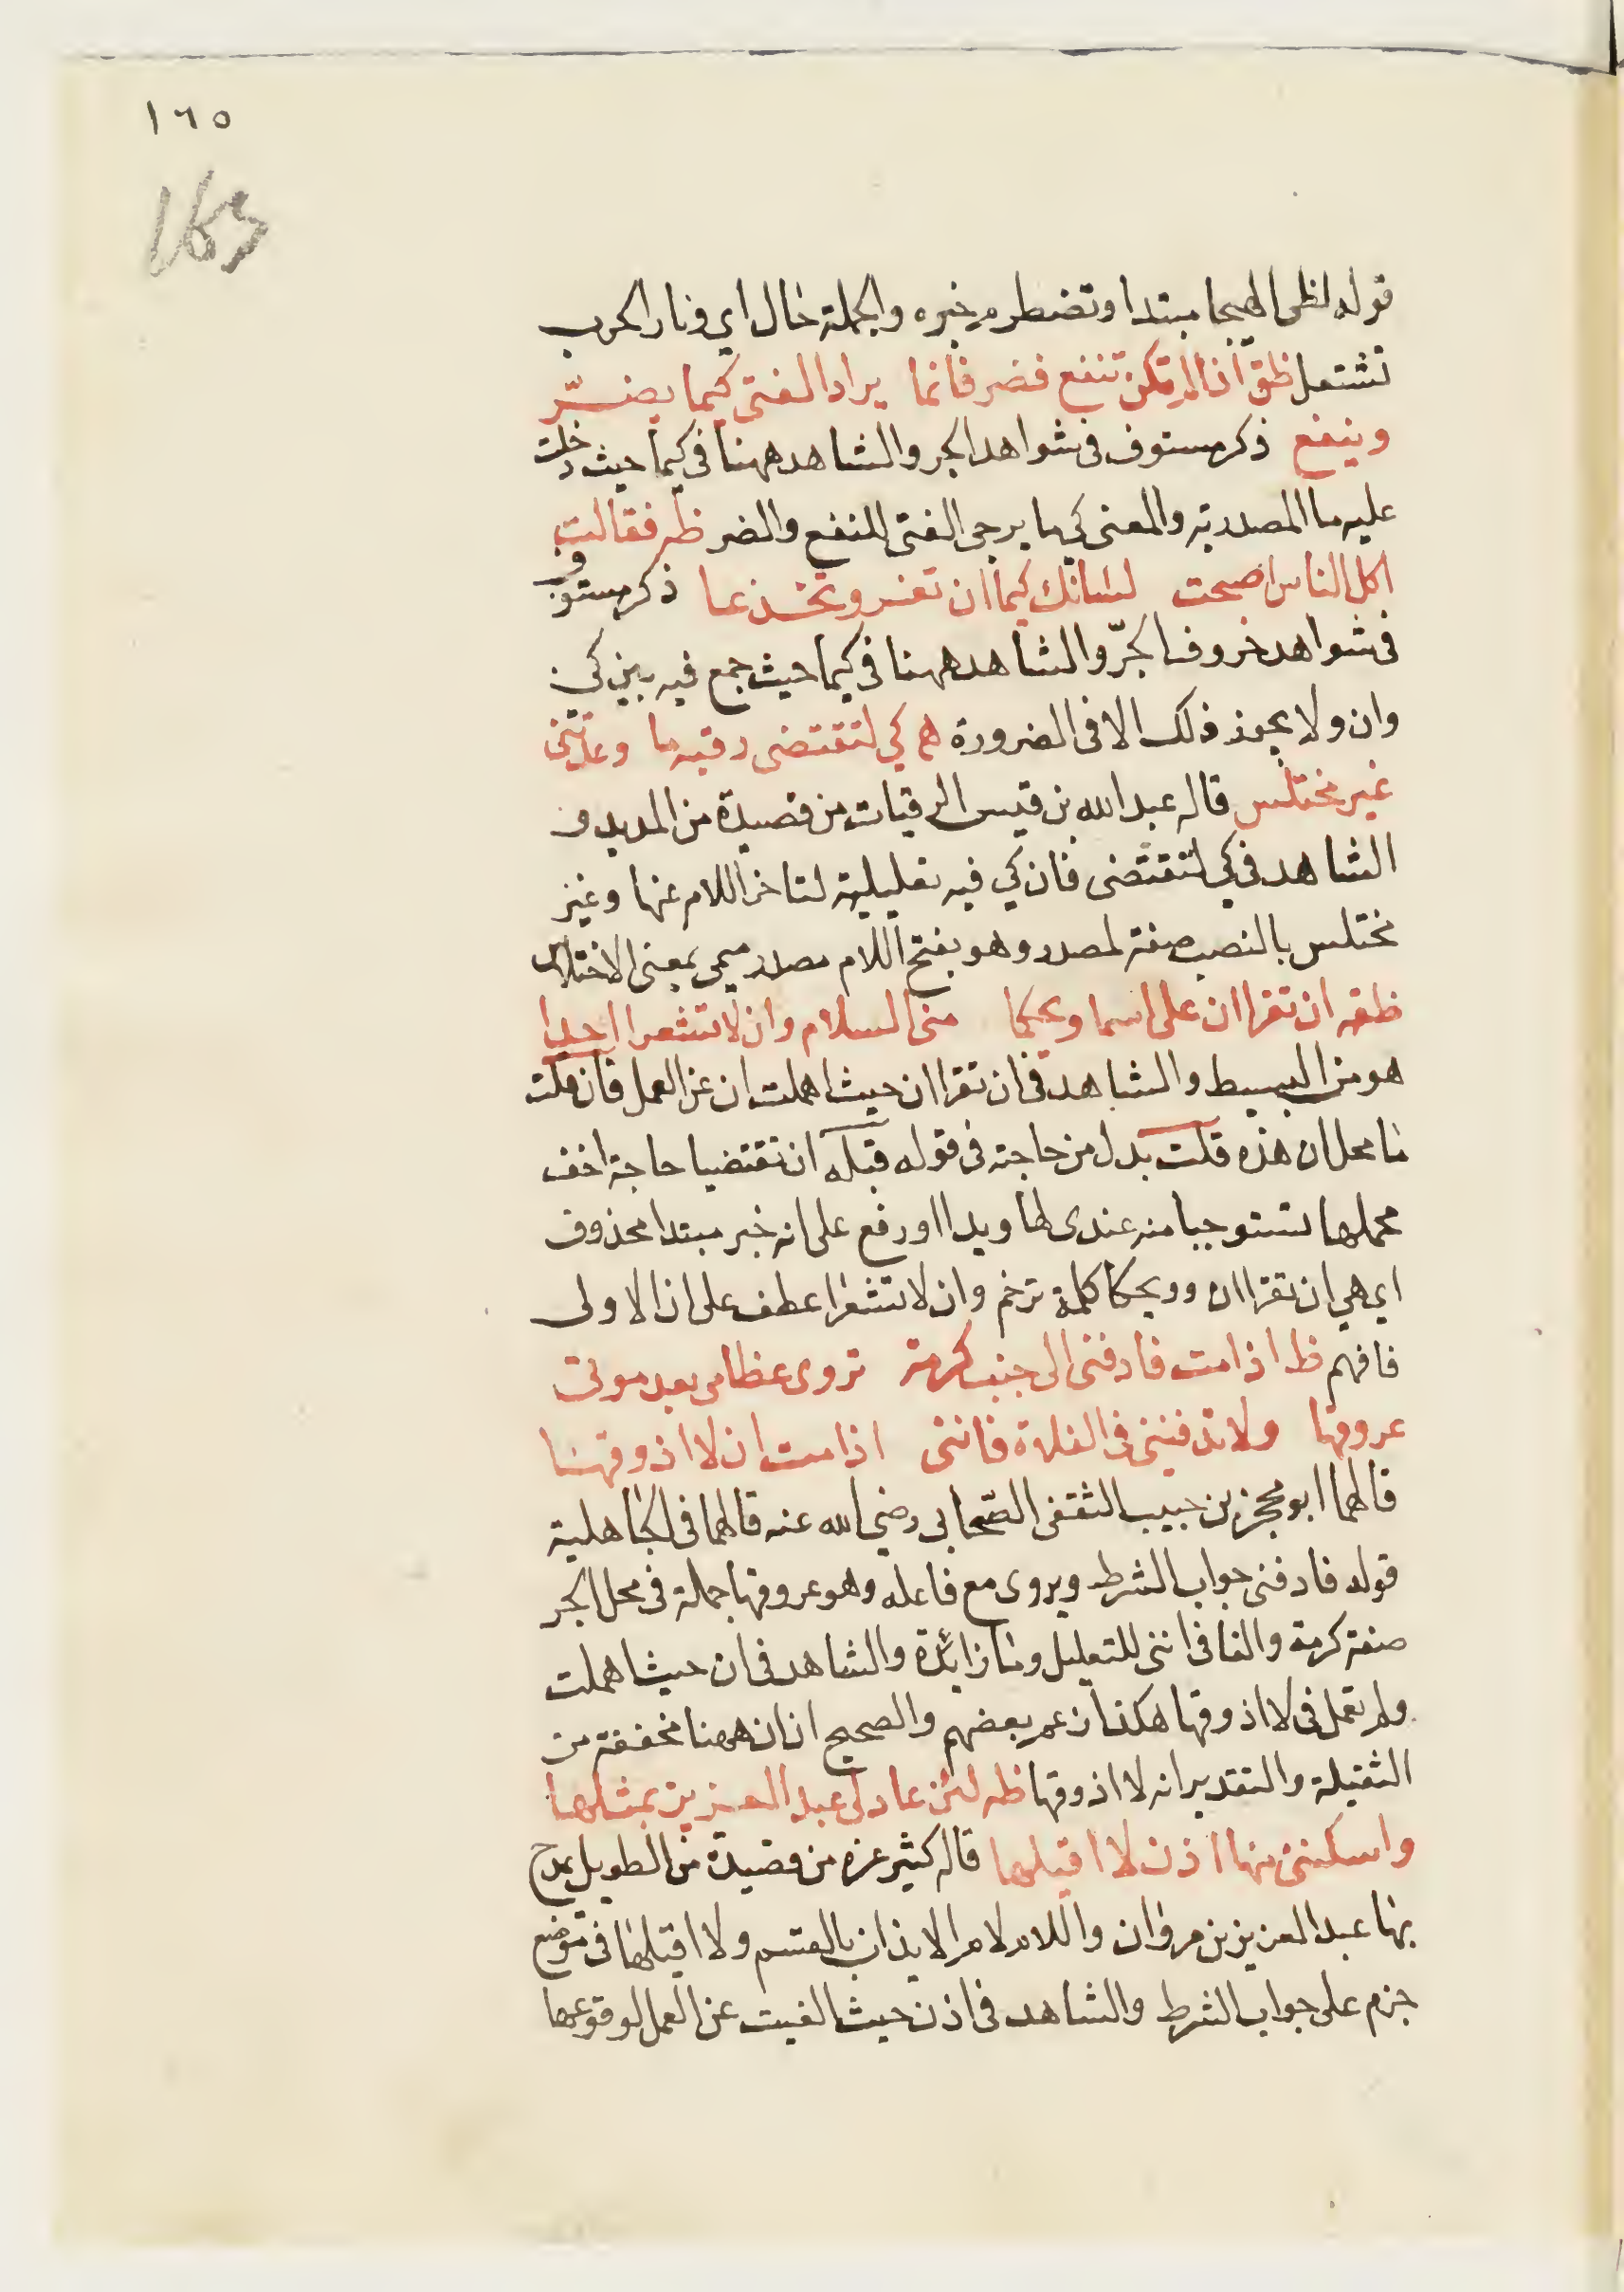 ١٦٥
165
قوله لظى الهيجا مبتدا وتضطرم خبره والجملة حال اي ونار الحرب
تشتعل ظق اذا لم تكن تنفع فضر فانما يراد الفتى كيما يضرّ
وينفع ذكر مستوف في شواهد الجر والشاهد ههنا في كيما حيث دخلت
عليه ما المصدرية والمعنى كي ما يرجى الفتى للنفع والضر ظه فقالت
اكل الناس اصبحت لسانك كيما ان تغر وتخدعا ذكر مستوف
في شواهد حروف الجرّ والشاهد ههنا في كيما حيث جمع فيه بين كي
وان ولا يجوز ذلك الا في الضرورة هم كي لتقتضى رقيه ما وعدتنى
غير مختلس قاله عبد الله بن قيس الرقيات من قصيدة من المديد و
الشاهد في كي لتقتضى فان كي فيه تعليلية لتاخر اللام عنها وغير
مختلس بالنصب صفة لمصدر وهو بفتح اللام مصدر ميمى بمعنى الاختلاس
ظقه ان تقراان على اسما ويحكما منى السلام وان لا تشعرا احدا
هو من البسيط والشاهد في ان تقراان حيث اهملت ان عن العمل فان قلت
ما محل ان هذه قلت بدل من حاجة في قوله قبله ان تقتضيا حاجة اخف
محملها تستوجبا منه عندى لها ويدا او رفع على انه خبر مبتدا محذوف
اي هي ان تقراان وويحكما كلمة ترحم وان لا تشعرا عطف على ان الاولى
فافهم ظ اذا مت فادفنى الى جنب كرمة تروى عظامى بعد موتى
عروقها ولا تدفننى في الفلاة فاننى اذا مت ان لا اذوقها
قالهما ابو محجن بن حبيب الثقفى الصّحابى رضي الله عنه قالهما في الجاهلية
قوله فادفنى جواب الشرط ويروى مع فاعله وهو عروقها جملة في محل الجر
صفة كرمة والفا في اننى للتعليل وما زائدة والشاهد في ان حيث اهملت
ولم تعمل في لا اذوقها هكذا زعم بعضهم والصحيح ان ان ههنا مخففة من
الثقيلة والتقدير انه لا اذوقها ظه لئن عاد لى عبد العزيز بمثلها
وامكننى منها اذن لا اقيلها قاله كثير عزه من قصيدة من الطويل يمدح
بها عبد العزيز بن مروان واللام لام الايذان بالقسم ولا اقيلها في موضع
جزم على جواب الشرط والشاهد في اذن حيث الغيت عن العمل لوقوعها